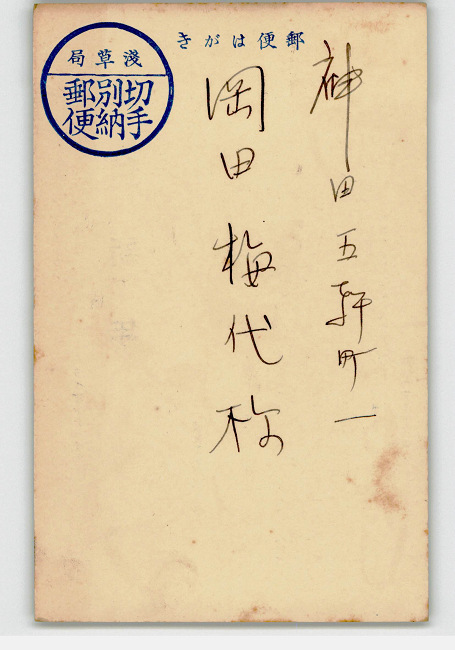 郵便はがき
淺草局
切手
別納
郵便
神田五軒町一
岡田梅代様